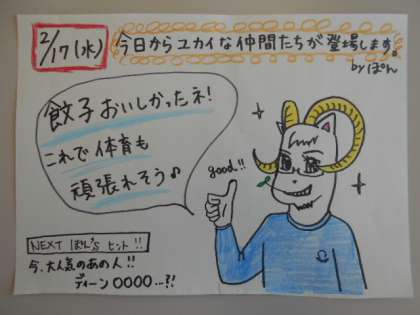 2/17(水)
今日からユカイな仲間たちが登場します。
byぽん
餃子おいしかったネ!
これで体育も
頑張れそう♪
good!!
NEXT ぽん's ヒント!!
今、大人気のあの人!!
ディーン〇〇〇〇…?!